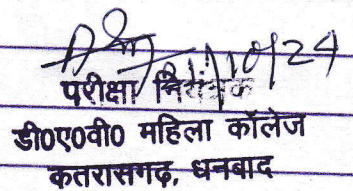 11/10/24
परीक्षा नियंत्रक
डी0ए0वी0 महिला कॉलेज
कतरासगढ़, धनबाद